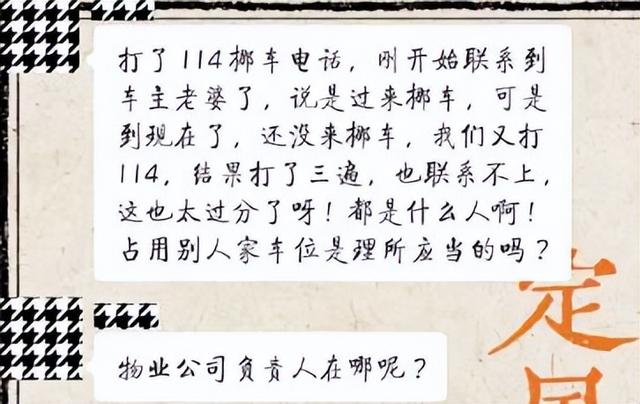 打了114挪车电话，刚开始联系到
车主老婆了，说是过来挪车，可是
到现在了，还没来挪车，我们又打
114，结果打了三遍，也联系不上，
这也太过分了呀！都是什么人啊！
占用别人家车位是理所应当的吗？
定
物业公司负责人在哪呢？